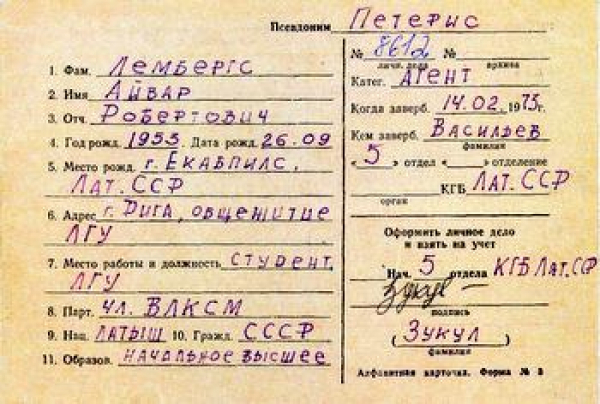 Псевдоним Петерис
№ 8612 №
личн. дела архива
1. Фам. Лембергс
Катег. АГЕНТ
2. Имя Айвар
Когда заверб. 14.02.1973г.
3. Отч. Робертович
Кем заверб. Васильев
фамилия
4. Год рожд. 1953 Дата рожд. 26.09
«5» отдел «___» отделение
5. Место рожд. г. Екабпилс,
Лат. ССР
КГБ Лат. ССР
орган
6. Адрес г. Рига, общежитие
ЛГУ
Оформить личное дело
и взять на учет
7. Место работы и должность студент,
ЛГУ
Нач. 5 отдела КГБ Лат. ССР
подпись
8. Парт. чл. ВЛКСМ
9. Нац. латыш 10. Гражд. СССР
(Зукул)
фамилия
11. Образов. начальное высшее
Алфавитная карточка. Форма № 3